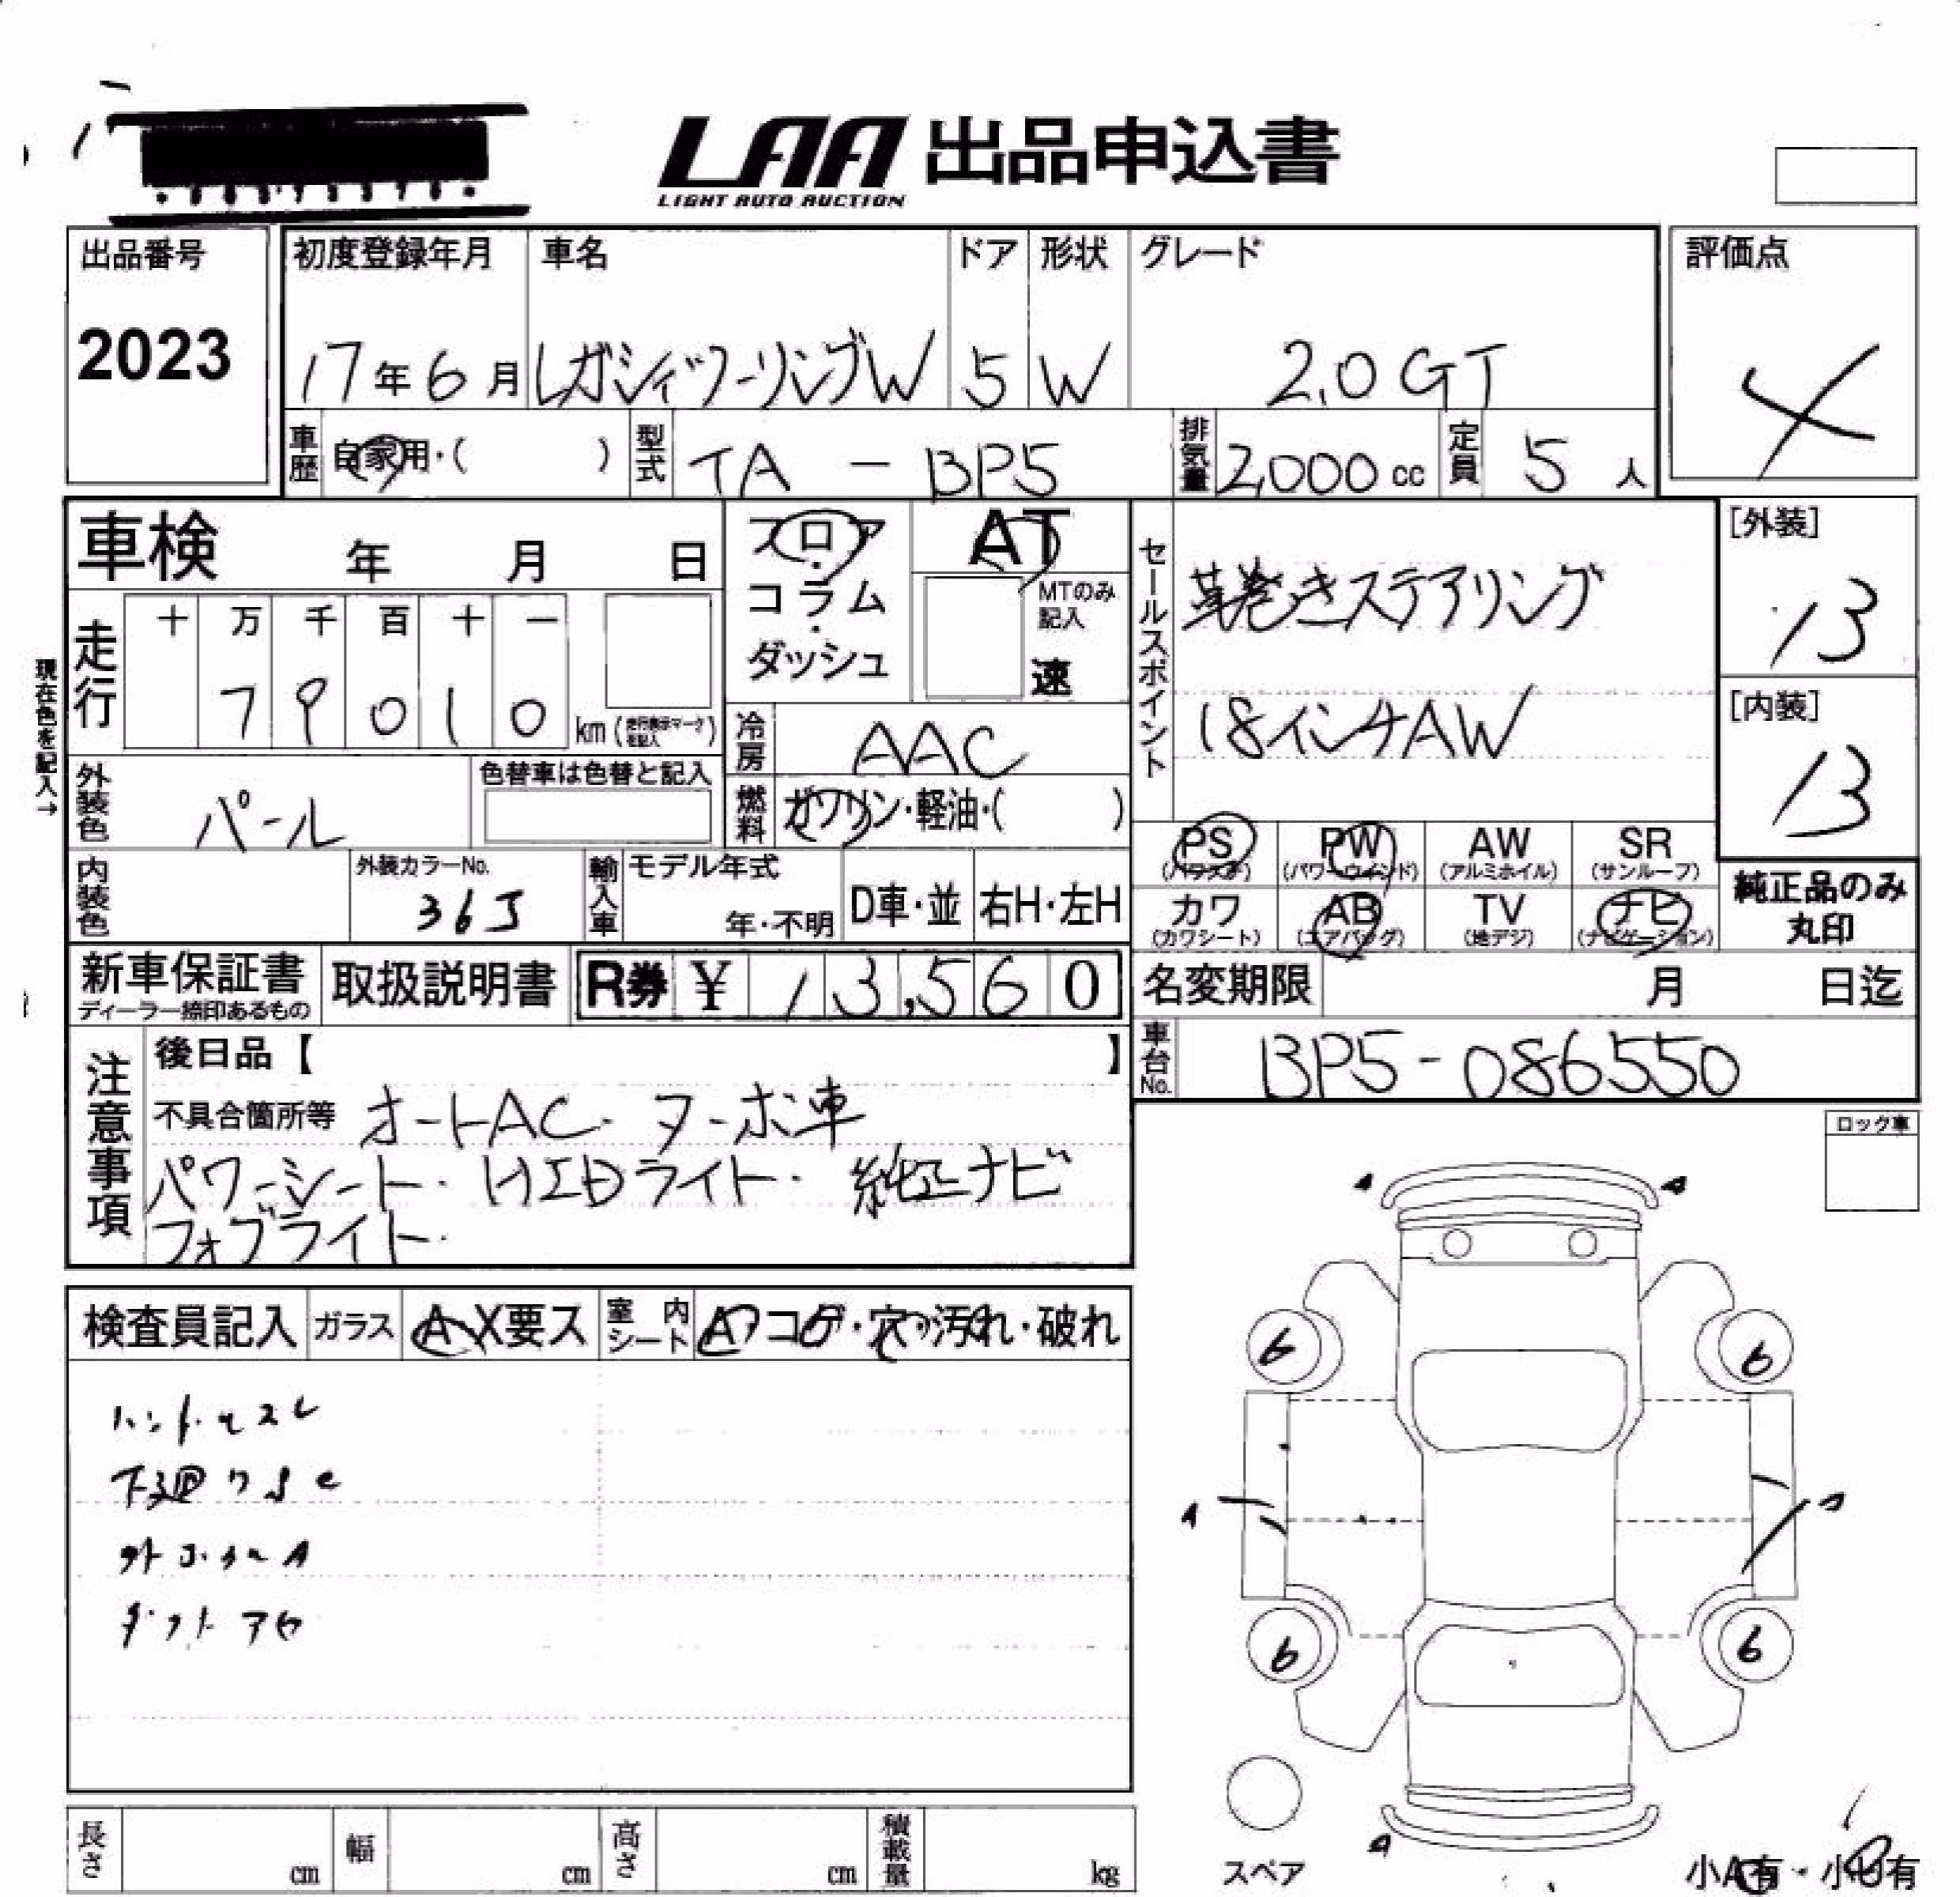 LAA 出品申込書
LIGHT AUTO AUCTION
出品番号
2023
初度登録年月 車名 ドア 形状 グレード
17年6月 レガシィツーリングW 5 W 2.0 GT
評価点
車歴 自家用・( ) 型式 TA - BP5 排気量 2,000 cc 定員 5 人
車検 年 月 日
フロア・コラム・ダッシュ
AT
MTのみ記入
速
セールスポイント
革巻きステアリング
18インチAW
[外装]
13
[内装]
13
現在色を記入→
走行 十 万 千 百 十 一
7 9 0 1 0 km (走行表示マークを記入)
冷房 AAC
燃料 ガソリン・軽油・( )
外装色 パール
色替車は色替と記入
内装色
外装カラーNo.
36J
輸入車 モデル年式
年・不明
D車・並 右H・左H
PS (パワステ) PW (パワーウインド) AW (アルミホイル) SR (サンルーフ)
カワ (カワシート) AB (エアバッグ) TV (地デジ) ナビ (ナビゲーション)
純正品のみ
丸印
新車保証書
ディーラー捺印あるもの
取扱説明書
R券 ¥ 13,560
名変期限 月 日迄
車台No. BP5-086550
注意事項
後日品【 】
不具合箇所等 オートAC・ターボ車
パワーシート・HIDライト・純正ナビ
フォグライト・
ロック車
検査員記入 ガラス A・X要ス 室内シート A・コゲ・穴・汚れ・破れ
A A
6 6
A
6 6
A
スペア
小A有・小U有
長さ cm 幅 cm 高さ cm 積載量 kg